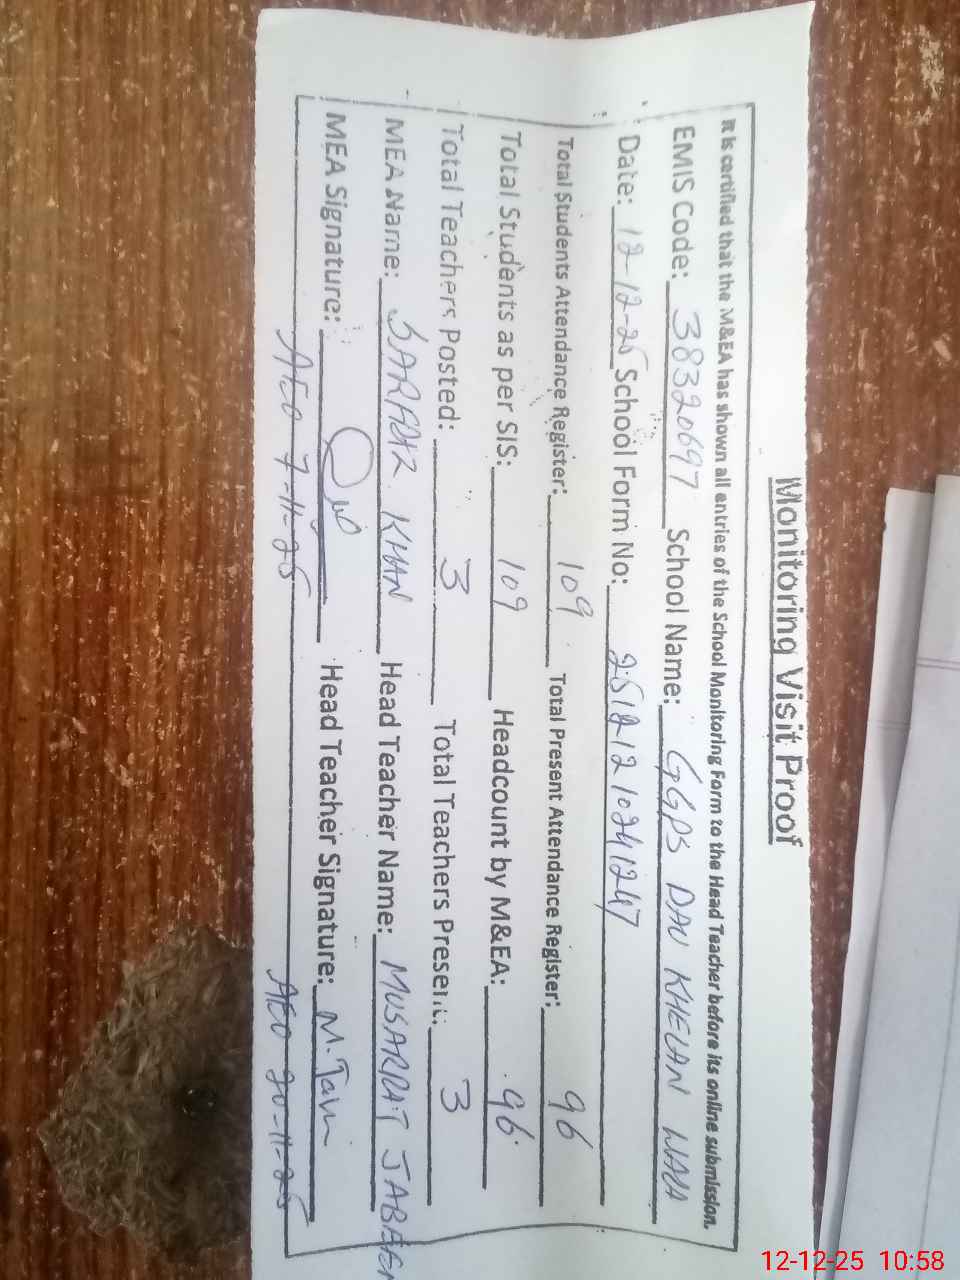 Monitoring Visit Proof
It is certified that the M&EA has shown all entries of the School Monitoring Form to the Head Teacher before its online submission.
EMIS Code: 38320697 School Name: GGPS DAU KHELAN WALA
Date: 12-12-25 School Form No: 25121210241247
Total Students Attendance Register: 109 Total Present Attendance Register: 96
Total Students as per SIS: 109 Headcount by M&EA: 96
Total Teachers Posted: 3 Total Teachers Present: 3
MEA Name: SARFRAZ KHAN Head Teacher Name: MUSARRAT JABEEN
MEA Signature: Head Teacher Signature: M.
AEO 7-11-25 AEO 20-11-25
12-12-25 10:58